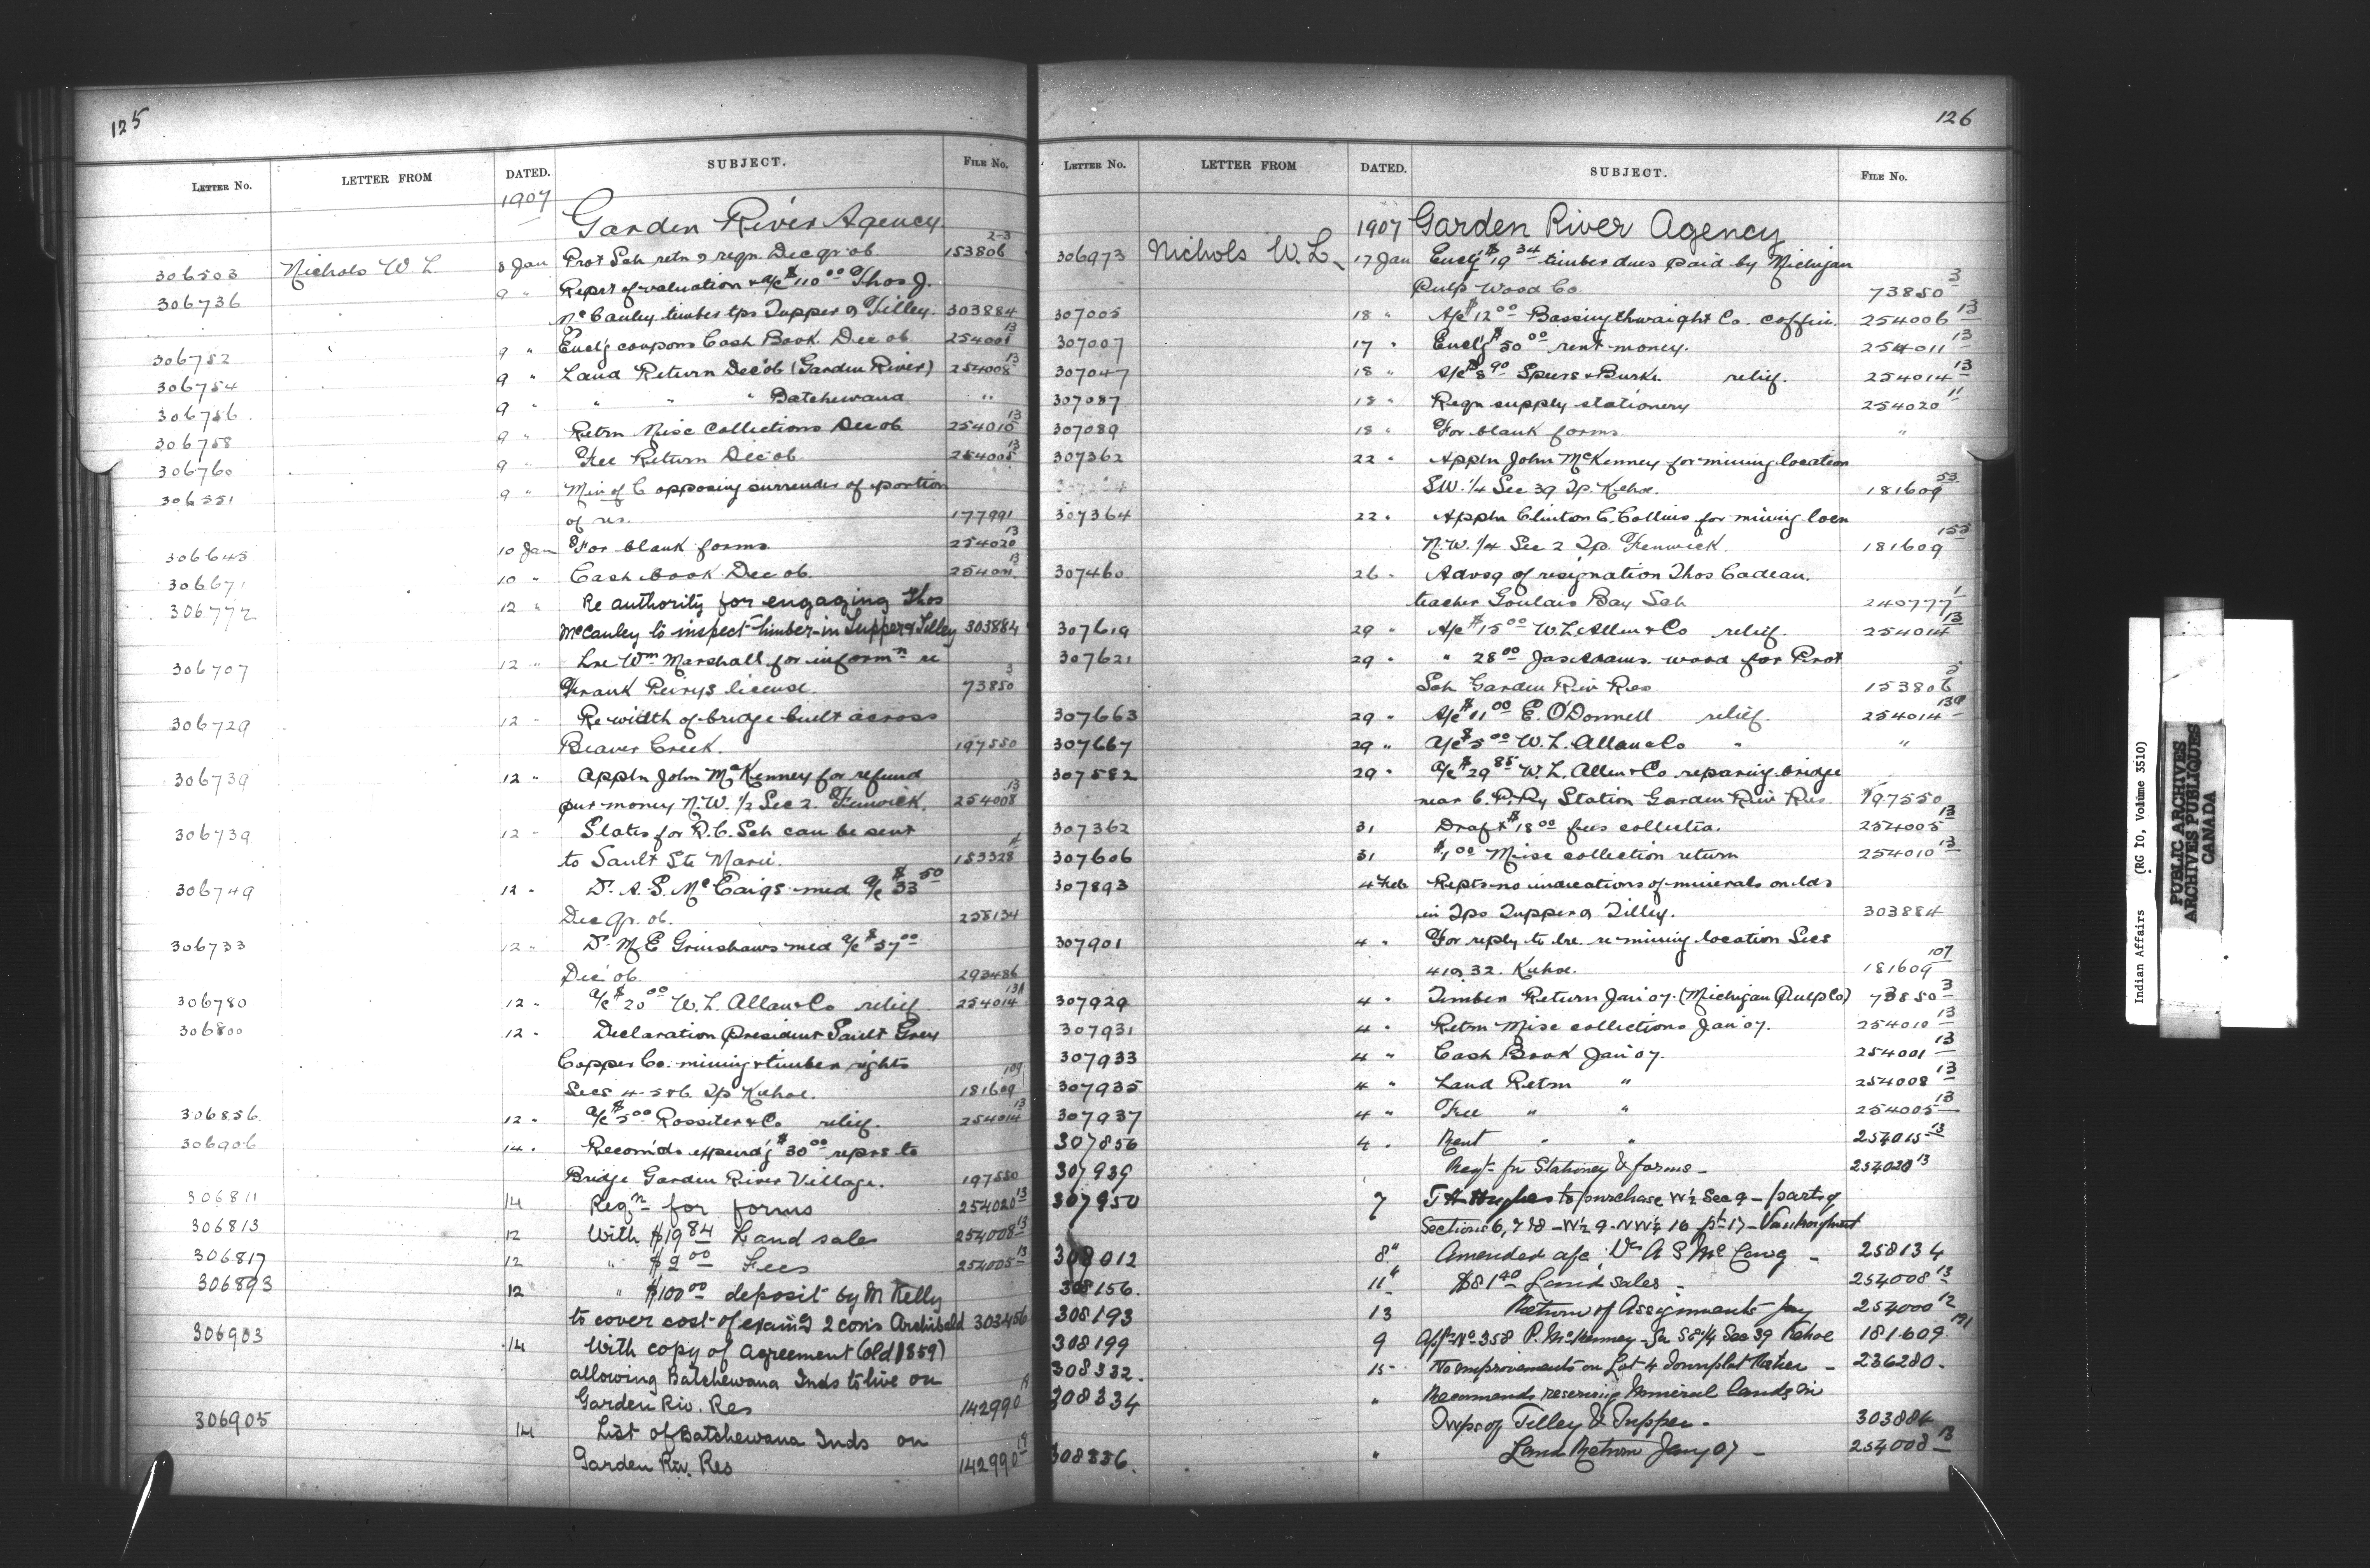 125
LETTER NO. LETTER FROM DATED. SUBJECT. FILE NO.
1907
Garden River Agency.
306503 Nichols W. L. 8 Jan Prot Sch retn & reqn. Dec qr. 06 153806 2-3
306736 9 " Report of valuation & a/c $110 00 Thos J.
McCauley timber tps Tupper & Tilley. 303884
306752 9 " Encl'g coupons Cash Book. Dec 06 254001 13
306754 9 " Land Return Dec 06 (Garden River) 254008 13
306756 9 " " " " Batchewana "
306758 9 " Retrn Misc Collections Dec 06 254010 13
306760 9 " Fee Return Dec 06. 254005 13
306551 9 " Min of C opposing surrender of portion
of res. 177991
306645 10 Jan For blank forms. 254020 13
306671 10 " Cash book Dec 06. 254001 13
306772 12 " Re authority for engaging Thos
McCauley to inspect timber in Tupper & Tilley 303884
306707 12 " Lre Wm Marshall for informn re
Frank Perrys license. 73850 3
306729 12 " Re width of bridge built across
Beaver Creek. 197550
306739 12 " Appln John McKenney for refund
pur money N.W. 1/2 Sec 2. Fenwick. 254008 13
306739 12 " Slates for R.C. Sch can be sent
to Sault Ste Marie. 153328 4
306749 12 " Dr. A. S. McCaigs med a/c $33 50
Dec Qr. 06. 258134
306733 12 " Dr. M E Grinshaws med a/c $57 00
Dec 06. 293486
306780 12 " a/c $20 00 W. L. Allan & Co relief 254014 13A
306800 12 " Declaration President Sault Grey
Copper Co. mining & timber rights
Secs 4-5 & 6. Tp Kehoe. 181609 109
306856. 12 " a/c $5 00 Rossiter & Co relief. 254014 13
306906 14 " Recomds expend'g $30 00 reprs to
Bridge Garden River Village. 197550
306811 14 Reqn for forms 254020 13
306813 12 With $19 84 Land sales 254008 13
306817 12 " $2 00 Fees 254005 13
306893 12 " $100 00 deposit by M Kelly
to cover cost of examg 2 cons Archibald 303456
306903 14 With copy of Agreement (old 1859)
allowing Batchewana Inds to live on
Garden Riv. Res 142990 A
306905 14 List of Batchewana Inds on
Garden Riv. Res 142990
126
LETTER NO. LETTER FROM DATED. SUBJECT. FILE NO.
1907 Garden River Agency
306973 Nichols W. L. 17 Jan Encl'g $19 34 timber dues paid by Michigan
Pulp Wood Co. 73850 3
307005 18 " A/c $12 00 Bassingthwaight Co. coffin. 254006 13
307007 17 " Encl'g $50 00 rent money. 254011 13
307047 18 " A/c $8 90 Speers & Burke. relief. 254014 13
307087 18 " Reqn supply stationery 254020 11
307089 18 " For blank forms. "
307362 22 " Appln John McKenney for mining location
SW. 1/4 Sec 39 Tp. Kehoe. 181609 53
307364 22 " Appln Clinton C. Collins for mining locn
N.W. 1/4 Sec 2 Tp. Fenwick. 181609 155
307460 26 " Advsg of resignation Thos Cadeau.
teacher Goulais Bay Sch 240777 1
307619 29 " A/c $15 00 W. L. Allen & Co relief. 254014 13
307621 29 " " 28 00 Jas Adams. wood for Prot
Sch Garden Riv Res 153806
307663 29 " A/c $11 00 E. O'Donnell relief. 254014
307667 29 " a/c $5 00 W. L. Allan & Co " "
307582 29 " a/c $29 85 W. L. Allen & Co reparing bridge
near C. P. Ry Station Garden Riv Res 197550
307362 31 Draft $18 00 fees collectn. 254005 13
307606 31 $1 00 Misc collection return 254010 13
307893 4 Feb Repts no indications of minerals on lds
in Tps Tupper & Tilley. 303884
307901 4 " For reply to lre. re mining location Secs
41 & 32. Kehoe. 181609 107
307929 4 " Timber Return Jan' 07. (Michigan Pulp Co) 73850 3
307931 4 " Retrn Misc collections Jan' 07. 254010 13
307933 4 " Cash Book Jan' 07. 254001 13
307935 4 " Land Retrn " 254008 13
307937 4 " Fee " " 254005 13
307856 4 " Rent " " 254015 13
307939 " Reqt- for Stationery & forms - 254020 13
307950 7 T H Hughes to purchase W 1/2 Sec 9 - parts of
Sections 6, 7 & 8 - W 1/2 9 - N W 1/4 16 pt 17 - Vankoughnet
308012 8 " Amended a/c Dr A S McCaig - 258134
308156. 11 " $81 40 Land sales - 254008 13
308193 13 Return of Assignments Jany 254000 12
308199 9 Appln No 358 P. McKenney - for SE 1/4 Sec 39 Kehoe 181609 191
308332. 15 No improvements on Lot 4 Townplot - 236280.
308334 " Recomends reserving Mineral lands in
Twps of Tilley & Tupper - 303884
308336. " Land Return Jany 07 - 254008 13
Indian Affairs (RG 10, Volume 3510)
PUBLIC ARCHIVES
ARCHIVES PUBLIQUES
CANADA